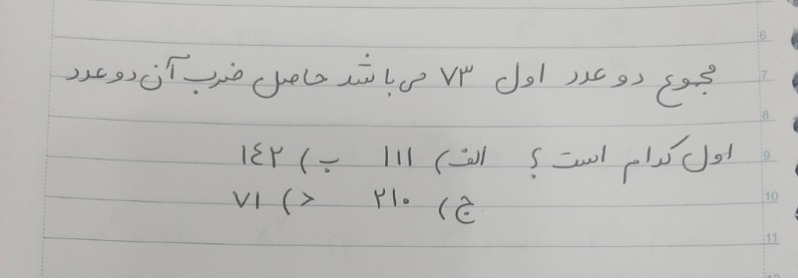 مجموع دو عدد اول ۷۳ می باشد حاصل ضرب آن دو عدد
اول کدام است ؟ الف) ۱۱۱ ب) ۱٤۲
ج) ۲۱۰ د) ۷۱
6
7
8
9
10
11